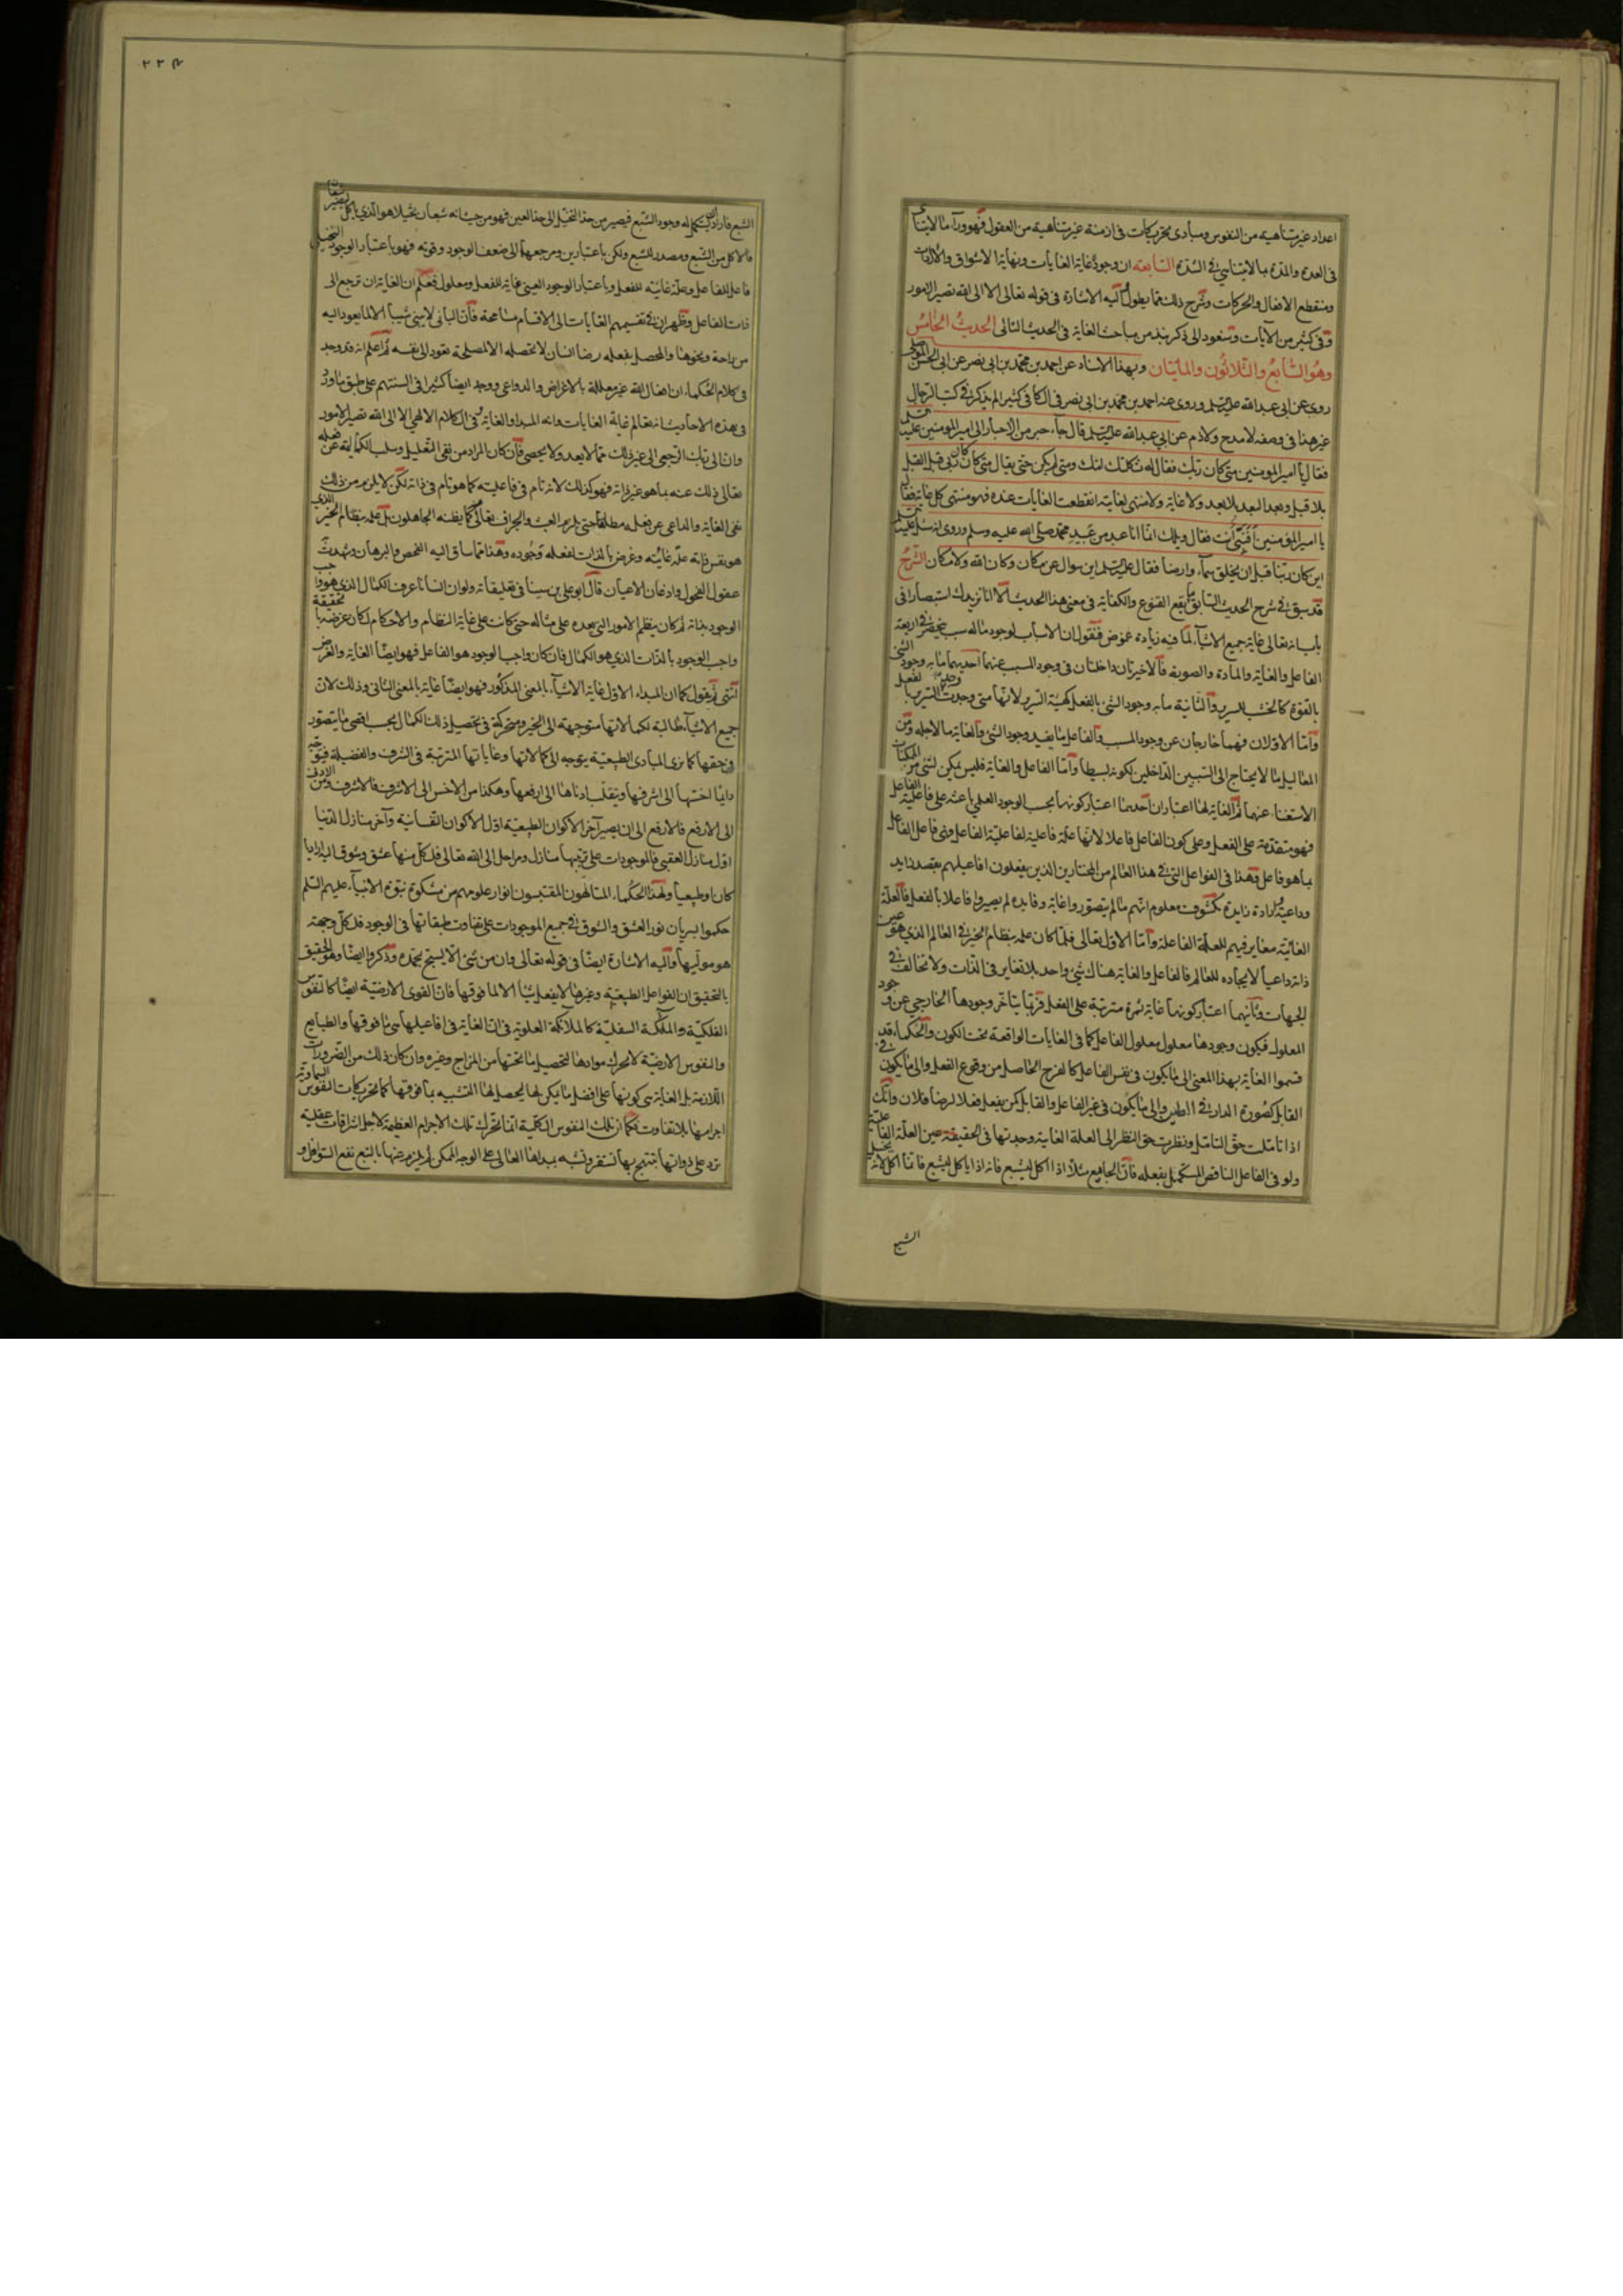 اعداد غير متناهية من النفوس ومبادى تحريكات فى ازمنة غير متناهية من العقول فهو وراء ما لا يتناهى
فى العدة والمدة بما لا يتناهى فى الشدة السابعة ان وجوده غاية الغايات ونهاية الاشواق والارادات
ومنقطع الافعال والحركات وشرح ذلك مما يطول اليه الاشارة فى قوله تعالى الا الى الله تصير الامور
وفى كثير من الآيات وسنعود الى ذكر نبذ من مباحث الغاية فى الحديث التالى الحديث الخامس
وهو السابع والثلاثون والمائتان وبهذا الاسناد عن احمد بن محمد بن ابى نصر عن ابى الحسن الموصلى
روى عن ابى عبد الله عليه السلم وروى عنه احمد بن محمد بن ابى نصر فى الكافى كثيرا لم يذكر فى كتب الرجال
غير هذا فى وصفه لا مدح ولا ذم عن ابى عبد الله عليه السلم قال جاء حبر من الاحبار الى امير المومنين عليه السلم
فقال يا امير المومنين متى كان ربك فقال له ثكلتك امك ومتى لم يكن حتى يقال متى كان كان ربى قبل القبل
بلا قبل وبعد البعد بلا بعد ولا غاية ولا منتهى لغايته انقطعت الغايات عنده فهو منتهى كل غاية فقال
يا امير المؤمنين أفنبى انت فقال ويلك انما انا عبد من عبيد محمد صلى الله عليه وسلم وروى انه سئل عليه السلم
اين كان ربنا قبل ان يخلق سماء وارضا فقال عليه السلم اين سوال عن مكان وكان الله ولا مكان الشرح
قد سبق فى شرح الحديث السابق ما يقع القنوع والكفاية فى معنى هذا الحديث الا انا نزيدك استبصارا فى
باب انه تعالى غاية جميع الاشياء لما فيه زيادة غموض فنقول ان الاسباب لوجود ماله سبب ينحصر فى اربعة
الفاعل والغاية والمادة والصورة فالاخيرتان داخلتان فى وجود المسبب عنهما احديهما ما به وجود الشئ
بالقوة كالخشب للسرير والثانية ما به وجود الشئ بالفعل كهيئة السرير لانها متى وجدت وجد السرير بالفعل
واما الاولان فهما خارجان عن وجود المسبب والفاعل ما يفيد وجود الشئ والغاية ما لاجله ومن
المعاليل ما لا يحتاج الى السببين الداخلين لكونه بسيطا واما الفاعل والغاية فليس يمكن لشئ من الممكنات
الاستغناء عنهما ثم الغاية لها اعتباران احدهما اعتبار كونها بحسب الوجود العلمى باعثه على فاعلية الفاعل
فهو متقدمة على الفعل وعلى كون الفاعل فاعلا لانها علة فاعلية لفاعلية الفاعل وفى فاعل الفاعل
بما هو فاعل وهذا فى الفواعل التى فى هذا العالم من المختارين الذين يفعلون افاعيلهم بقصد زايد
وداعية وارادة زايدة مكشوف معلوم انهم ما لم يتصوروا غاية وفايده لم يصيروا فاعلا بالفعل فالعلة
الغائية مغاير فيهم للعلة الفاعلة واما الاول تعالى فلما كان علمه بنظام الخير فى العالم الذى هو عين
ذاته داعيا لايجاده للعالم فالفاعل والغاية هناك شئ واحد بلا تغاير فى الذات ولا تخالف فى
الجهات وثانيهما اعتبار كونها غاية ثمرة مترتبة على الفعل فربما يتاخر وجودها الخارجى عن وجود
المعلول فيكون وجودها معلول معلول الفاعل كما فى الغايات الواقعة تحت الكون والحكماء قد
قسموا الغاية بهذا المعنى الى ما يكون فى نفس الفاعل كالفرح الحاصل من وقوع الفعل والى ما يكون فى
القابل كصورة الدار فى الطين والى ما يكون فى غير الفاعل والقابل كمن يفعل فعلا لرضا فلان وانك
اذا تاملت حق التامل ونظرت حق النظر الى العلة الغاية وجدتها فى الحقيقة عين العلة الفاعلية
ولو فى الفاعل الناقص المستكمل بفعله فان الجايع مثلا اذا اكل ليشبع فانه اذا ياكل ليشبع فانما اكل لانه تخيل
الشبع
٢٢٤
الشبع فاراد ان يستكمل له وجود الشبع فيصير من حد التخيل الى حد العين فهو من حيث انه شبعان تخيلا هو الذى ياكل ليصير شبعانا
فالاكل من الشبع ومصدر للشبع ولكن باعتبارين ومرجعهما الى ضعف الوجود وقوته فهو باعتبار الوجود التخيلى
فاعل للفاعل وعلة غائيه للفعل وباعتبار الوجود العينى غاية للفعل ومعلول فعلم ان الغاية ان ترجع الى
ذات الفاعل وظهر ان فى تقسيمهم الغايات الى الاقسام مسامحة فان البانى لا يبنى شيئا الا لما يعود اليه
من راحة ونحوها والمحصل بفعله رضا انسان لا تحصله الا لمصلحة تعود الى نفسه ثم اعلم انه قد وجد
فى كلام الحكماء ان افعال الله غير معللة بالاغراض والدواعى ووجد ايضا كثيرا فى السنتهم على طبق ما ورد
فى هذه الاحاديث انه تعالى غاية الغايات وانه المبدا والغاية وفى الكلام الالهى الا الى الله تصير الامور
وان الى ربك الرجعى الى غير ذلك مما لا يعد ولا يحصى فان كان المراد من نفى التعليل وسلب اللمية عن فعله
تعالى ذلك عنه بما هو غير ذاته فهو كذلك لانه تام فى فاعليته كما هو تام فى ذاته لكن لا يلزم من ذلك
نفى الغاية والداعى عن فعله مطلقا حتى يلزم العبث والجزاف تعالى عما يظنه الجاهلون بل علمه بنظام الخير الذى
هو نفس ذاته علة غائيه وغرض بالذات لفعله وجوده وهذا مما ساق اليه الفحص والبرهان وشهدت
عقول الفحول واذعان الاعيان قال ابو على بن سينا فى تعليقاته ولو ان انسانا عرف الكمال الذى هو واجب
الوجود بذاته ثم كان ينظم الامور التى بعده على مثاله حتى كانت على غاية النظام والاحكام لكان غرضه بالحقيقة
واجب الوجود بالذات الذى هو الكمال فان كان واجب الوجود هو الفاعل فهو ايضا الغاية والغرض
انتهى ثم نقول كما ان المبداء الاول غاية الاشياء بالمعنى المذكور فهو ايضا غاية بالمعنى الثانى وذلك لان
جميع الاشياء طالبة لكمالاتها متوجهة الى الخير ومتحركة فى تحصيل ذلك الكمال بحسب اقصى ما يتصور
فى حقها كما نرى المبادى الطبيعية يتوجه الى كمالاتها وغاياتها المترتبة فى الشرف والفضيلة فيتوجه
دايما اخسها الى اشرفها وينقلب ادناها الى ارفعها وهكذا من الاخس الى الاشرف فالاشرف ومن الادنى
الى الارفع فالارفع الى ان يصير آخر الاكوان الطبيعية اول الاكوان النفسانية وآخر منازل الدنيا
اول منازل العقبى فالموجودات على ترتبها منازل ومراحل الى الله تعالى فلكل منها عشق وشوق اليه اراديا
كان او طبيعيا ولهذا الحكماء المتالهون المقتبسون انوار علومهم من مشكوة نبوة الانبياء عليهم السلم
حكموا بسريان نور العشق والشوق فى جميع الموجودات على تفاوت طبقاتها فى الوجود فلكل وجهة
هو موليها واليه الاشارة ايضا فى قوله تعالى وان من شئ الا يسبح بحمده وذكروا ايضا وهو الحقيق
بالتحقيق ان الفواعل الطبيعية وغيرها لا يفعل شيئا الا لما فوقها فان القوى الارضية ايضا كالنفوس
الفلكية والملكة السفلية كالملائكة العلوية فى ان الغاية فى افاعيلها هى ما فوقها والطبايع
والنفوس الارضية لا تحرك موادها لتحصيل ما تحتها من المزاج وغيره وان كان ذلك من الضرورات
اللازمة بل الغاية هى كونها على افضل ما يمكن لها ليحصل لها التشبيه بما فوقها كما تحريكات النفوس السماوية
اجرامها بلا تفاوت فكما ان تلك النفوس الفلكية انما تحرك تلك الاجرام العظيمة لاجل اشراقات عقلية
ترد على ذواتها تبتهج بها تستفز وتشبه بمبداها العالى على الوجه الممكن ثم يلزم منها بالتبع نفع السوافل و